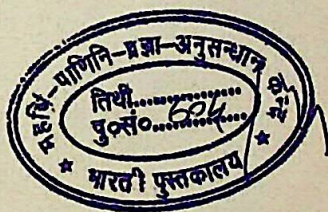 महर्षि-पाणिनि-प्रज्ञा-अनुसन्धान
तिथी..................
पु०सं०.................
भारती पुस्तकालय